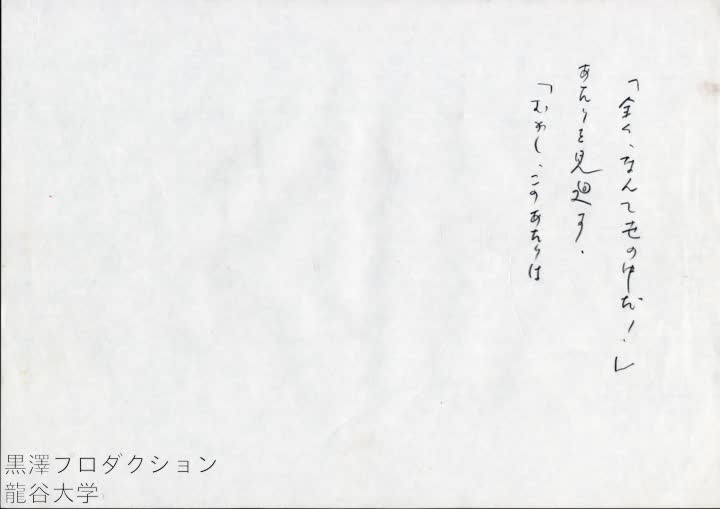 「全く、なんて世の中だ！」
あたりを見廻す。
「むかし、このあたりは
黒澤プロダクション
龍谷大学